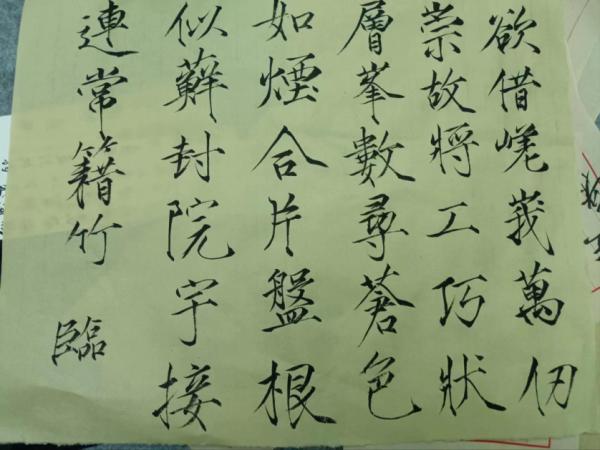 欲借嵯峩萬仞
崇故將工巧狀
層峯數尋蒼色
如煙合片盤根
似蘚封院宇接
連常籍竹 臨